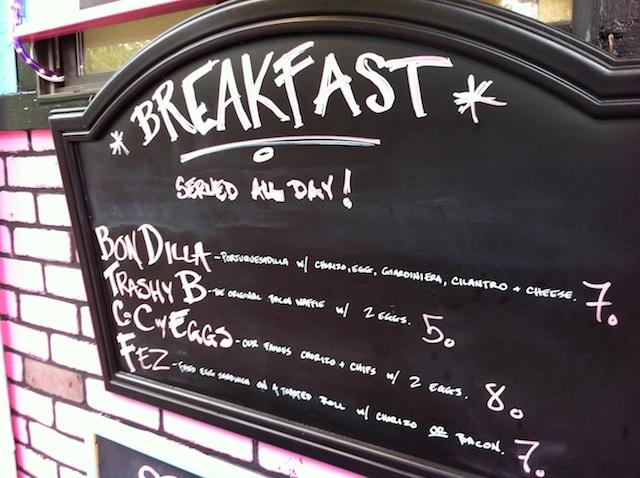 * BREAKFAST *
SERVED ALL DAY!
BON DILLA - PORTUGUESADILLA W/ CHORIZO, EGG, GIARDINIERA, CILANTRO + CHEESE. 7.
TRASHY B - THE ORIGINAL BACON WAFFLE W/ 2 EGGS. 5.
C C W EGGS - OUR FAMOUS CHORIZO + CHIPS W/ 2 EGGS. 8.
FEZ - FRIED EGG SANDWICH ON A TOASTED ROLL W/ CHORIZO OR BACON. 7.